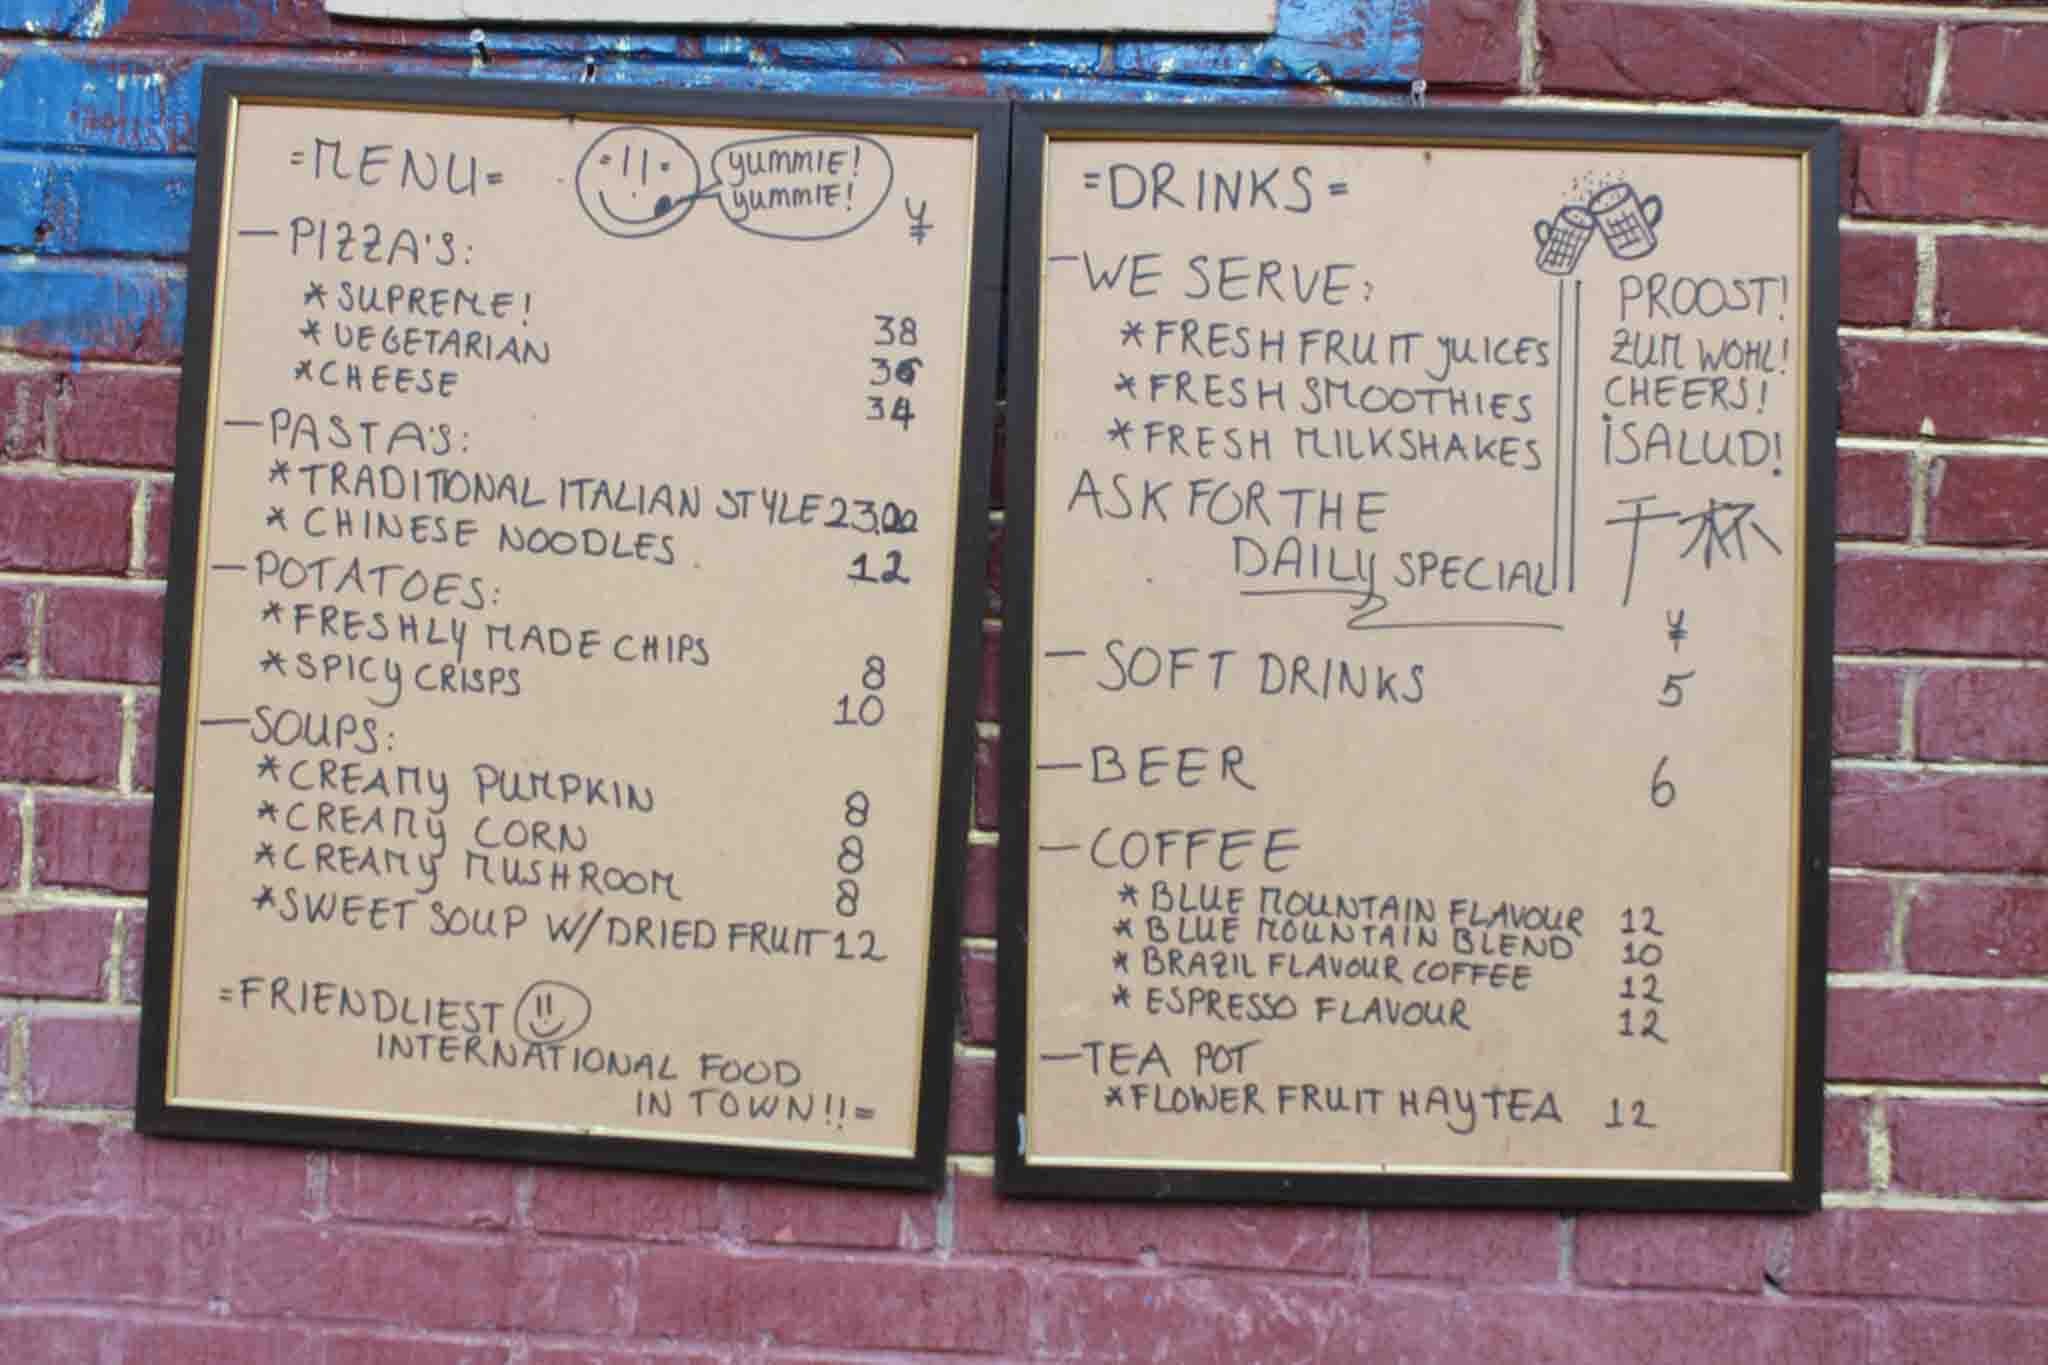 =MENU=
YUMMIE!
YUMMIE!
¥
—PIZZA'S:
*SUPREME! 38
*VEGETARIAN
*CHEESE 34
—PASTA'S:
*TRADITIONAL ITALIAN STYLE 23.00
*CHINESE NOODLES 12
—POTATOES:
*FRESHLY MADE CHIPS 8
*SPICY CRISPS 10
—SOUPS:
*CREAMY PUMPKIN 8
*CREAMY CORN 8
*CREAMY MUSHROOM 8
*SWEET SOUP W/DRIED FRUIT 12
=FRIENDLIEST
INTERNATIONAL FOOD
IN TOWN!!=
=DRINKS=
—WE SERVE:
*FRESH FRUIT JUICES
*FRESH SMOOTHIES
*FRESH MILKSHAKES
ASK FOR THE
DAILY SPECIAL
PROOST!
ZUM WOHL!
CHEERS!
¡SALUD!
干杯
¥
—SOFT DRINKS 5
—BEER 6
—COFFEE
*BLUE MOUNTAIN FLAVOUR 12
*BLUE MOUNTAIN BLEND 10
*BRAZIL FLAVOUR COFFEE 12
*ESPRESSO FLAVOUR 12
—TEA POT
*FLOWER FRUIT HAY TEA 12